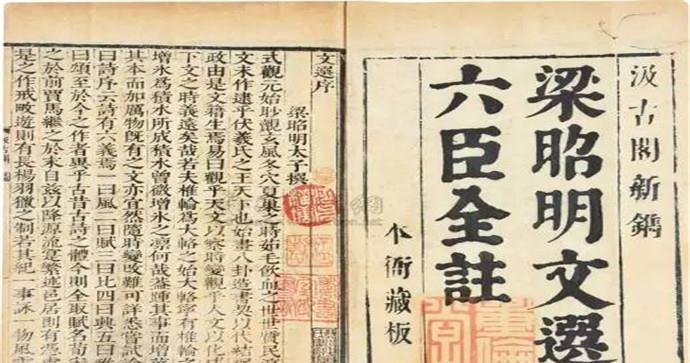 汲古閣新鐫
梁昭明文選
六臣全註
本衙藏板
文選序
梁昭明太子撰
式觀元始眇覿玄風冬穴夏巢之時茹毛飲血之世世質民
文未作逮乎伏羲氏之王天下也始畫八卦造書契以代結
政由是文籍生焉易曰觀乎天文以察時變觀乎人文以化
下文之時義遠矣哉若夫椎輪爲大輅之始大輅寧有椎輪
增氷爲積水所成積水曾微增氷之凛何哉蓋踵其事而增
其本而加厲物旣有之文亦宜然隨時變改難可詳悉嘗試
曰詩序云詩有六義焉一曰風二曰賦三曰比四曰興五曰
曰頌至於今之作者異乎古昔古詩之體今則全取賦名荀
之於前賈馬繼之於末自兹以降源流寔繁述邑居則有憑
是之作戒畋遊則有長楊羽獵之制若其紀一事詠一物風